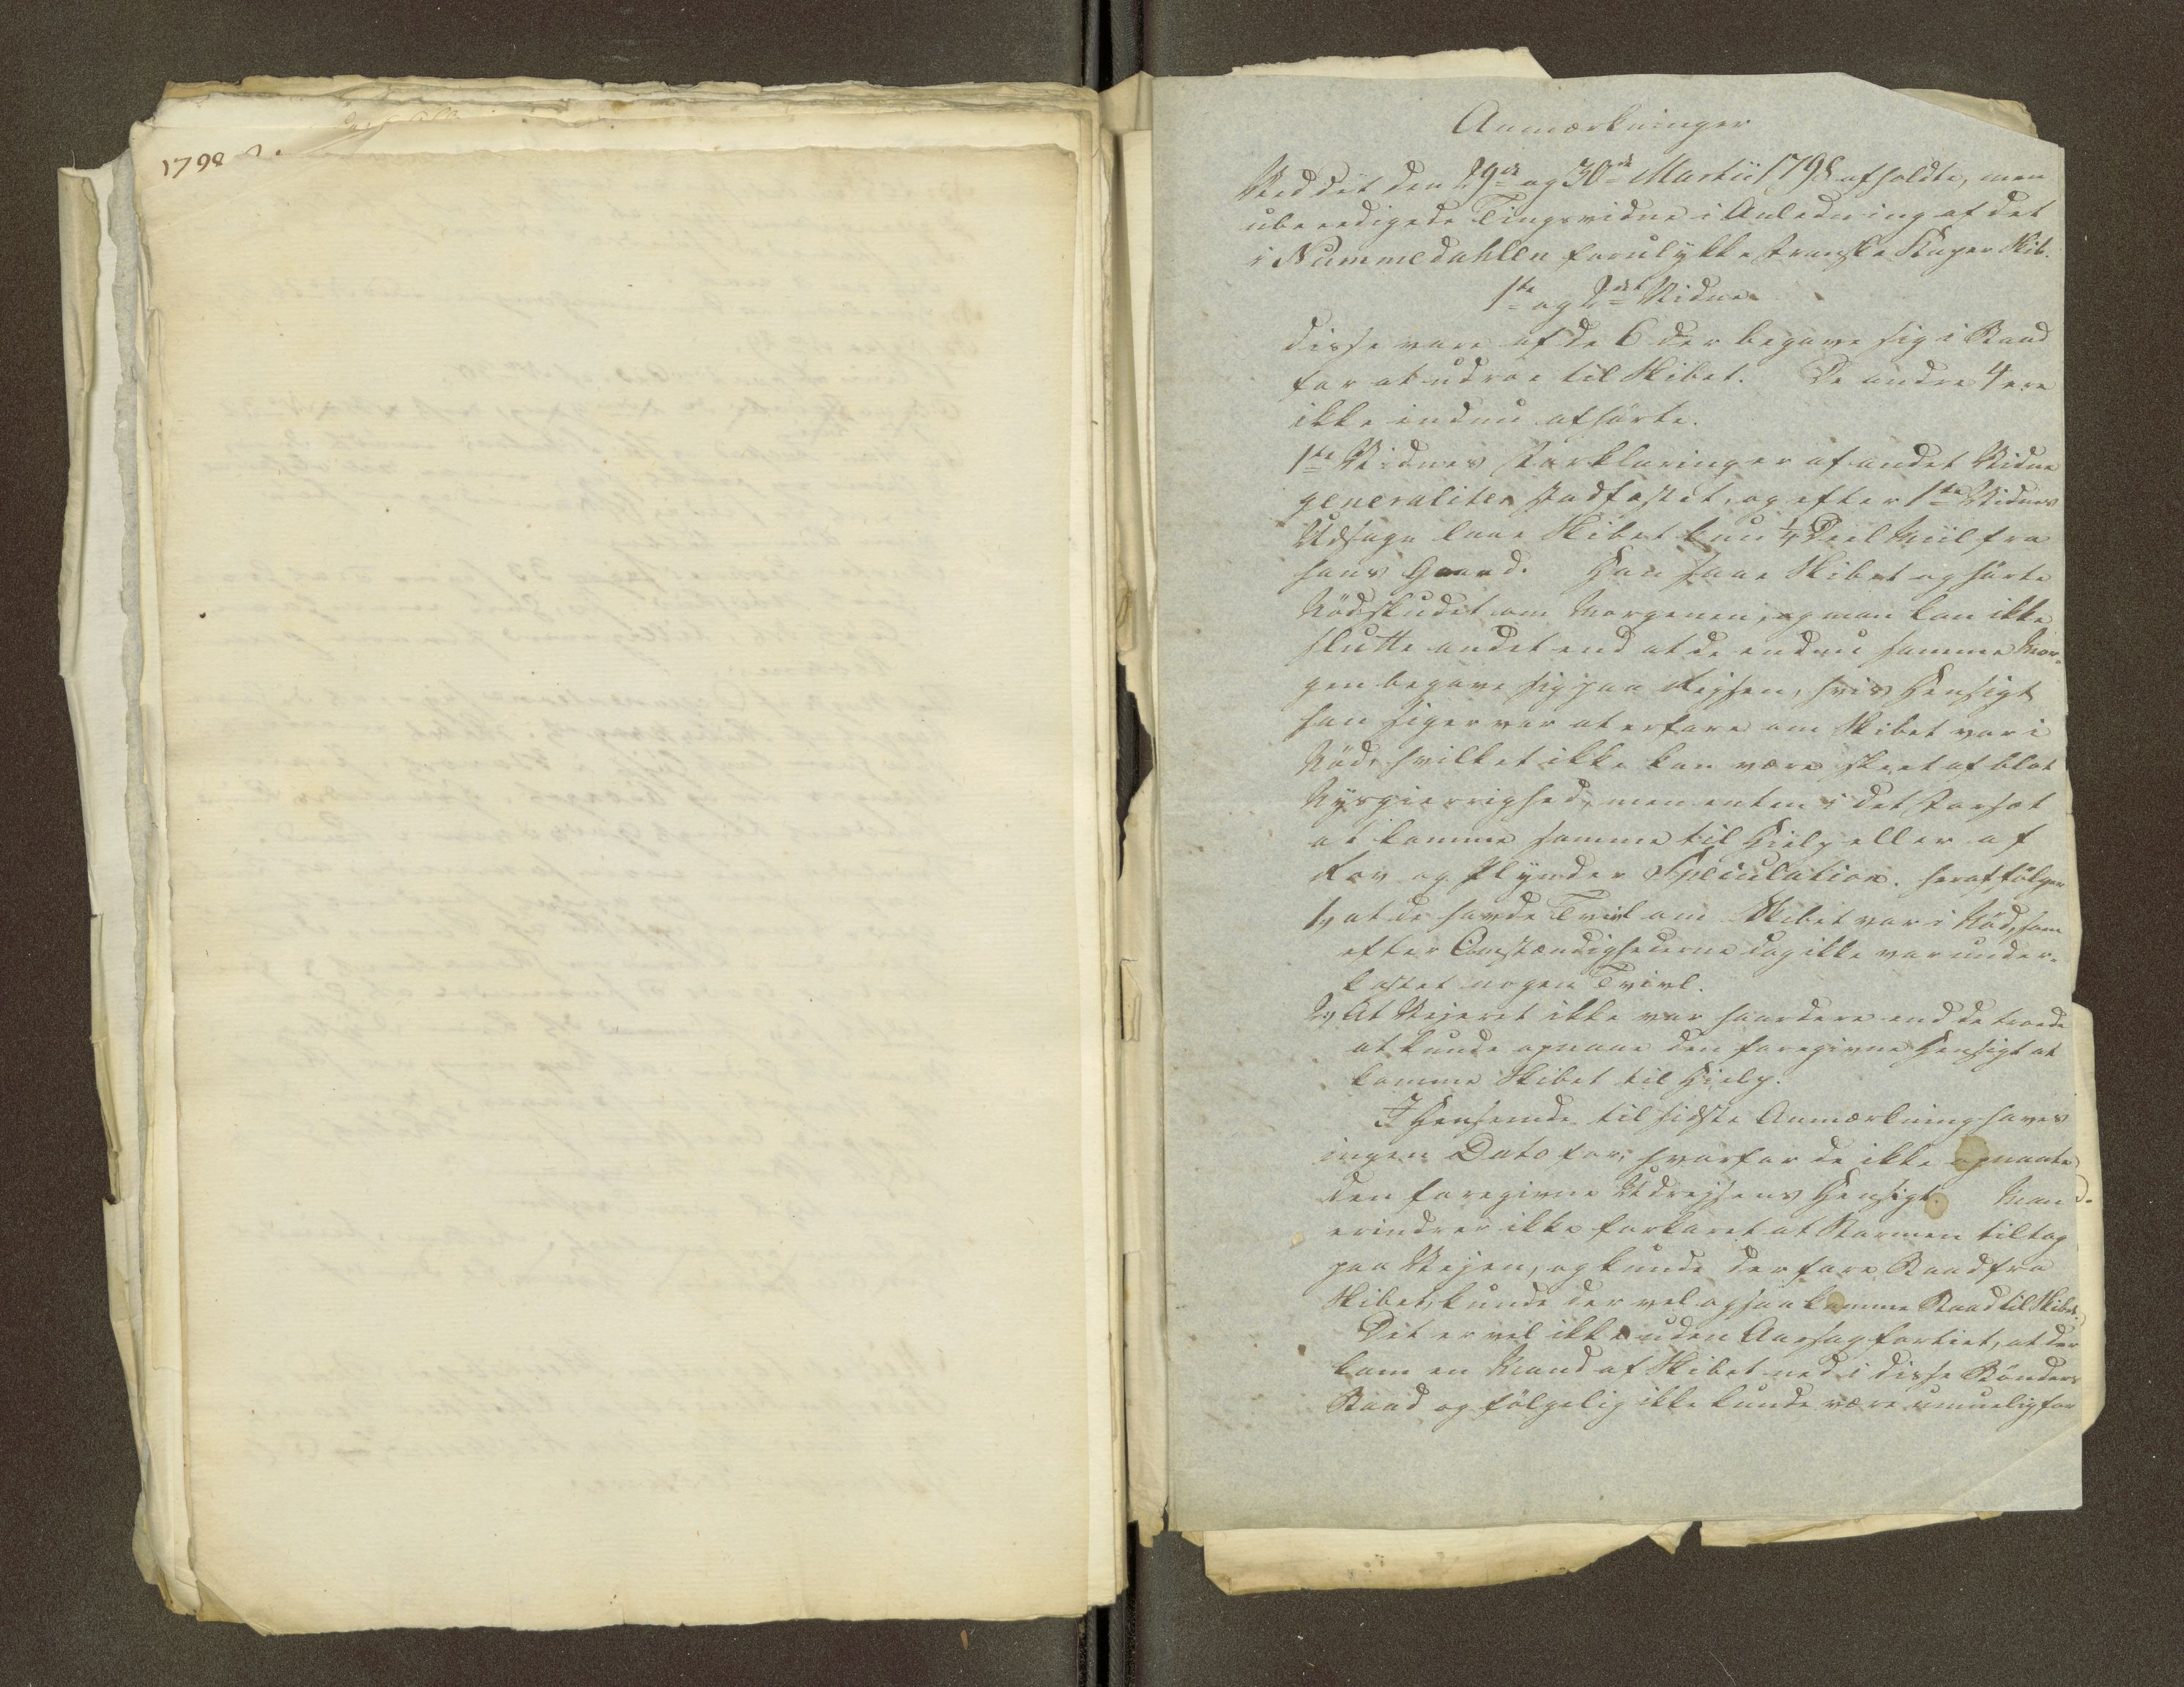 1798
Anmærkninger
Ved det den 29de og 30de Martii 1798 afholdte, men
ubeedigede Tingsvidne i Anledning af det
i Nummedahlen forulykke franske Kaper Skib.
1te og 2det Vidne.
disse vare af de 6 der begave sig i Baad
for at udroe til Skibet. De andre 4 ere
ikke endnu afhørte.
1te Vidnes Forklaringer af andet Vidne
generaliter stadfæstet, og efter 1te Vidnes
Udsagn laae Skibet kun 1/4 Deel Miil fra
hans Gaard. Han saae Skibet og hørte
Nødskudet om Morgenen, og man kan ikke
slutte andet end at de endnu samme Mor-
gen begave sig paa Rejsen, hvis Hensigt
han siger var at erfare om Skibet var i
Nød, hvilket ikke kan være skeet af blot
Nysgierrighed, men enten i det Forsæt
at komme samme til Hielp eller af
Rov og Plynder Speculation. heraf følger
1, at de havde Tvivl om Skibet var i Nød, som
efter Omstændighederne dog ikke var under-
kastet nogen Tvivl.
2, At Vejeret ikke var haardere end de troede
at kunde opnaae den foregivne Hensigt at
komme Skibet til Hielp.
I Henseende til sidste Anmærkning haves
ingen Dato for, hvorfor de ikke opnaaete
den foregivne Udrejsens Hensigt. Man
erindrer ikke forklaret at Stormen tiltog
paa Vejen, og kunde der fare Baad fra
Skibet, kunde der vel ogsaa komme Baad til Skibet.
Det er vel ikke uden Aarsag fortiet, at der
kom en Mand af Skibet ned i disse Bønders
Baad og følgelig ikke kunde være umuelig for